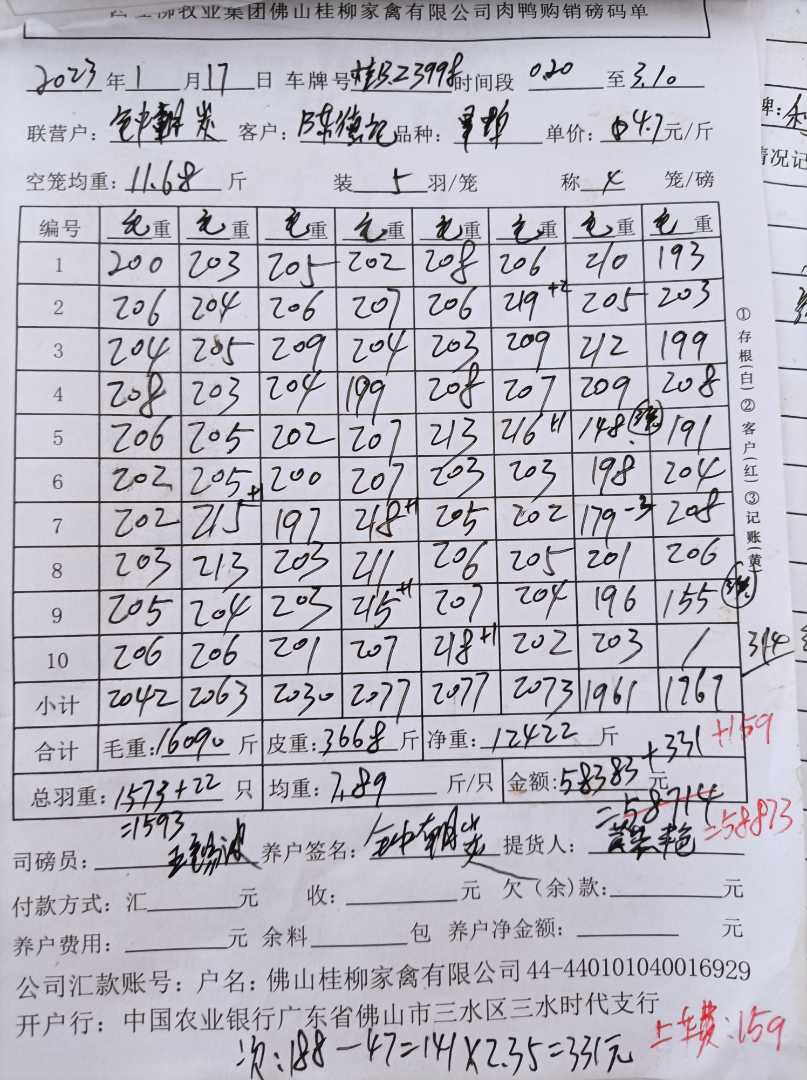 牧业集团佛山桂柳家禽有限公司肉鸭购销磅码单
2023年1月17日 车牌号 时间段 0.20 至 3.10
联营户: 客户: 陈德记 品种: 单价: 4.7元/斤
空笼均重: 11.68斤 装 5 羽/笼 称 4 笼/磅
编号 毛重 毛重 毛重 毛重 毛重 毛重 毛重 毛重
1 200 203 205 202 208 206 210 193
2 206 204 206 207 206 219+2 205 203
3 204 205 209 204 203 209 212 199
4 208 203 204 199 208 207 209 208
5 206 205 202 207 213 216+1 148 191
6 202 205 200 207 203 203 198 204
7 202 215+1 197 218+1 205 202 179-3 208
8 203 213 203 211 206 205 201 206
9 205 204 203 215+1 207 204 196 155
10 206 206 201 207 218+1 202 203 / 314
小计 2042 2063 2030 2077 2077 2073 1961 1767
合计 毛重: 16090斤 皮重: 3668斤 净重: 12422斤
总羽重: 1573+22只 均重: 7.89斤/只 金额: 58383元+331 +159
=1593 =58714 =58873
司磅员: 养户签名: 提货人:
付款方式: 汇 元 收: 元 欠(余)款: 元
养户费用: 元 余料 包 养户净金额: 元
公司汇款账号: 户名: 佛山桂柳家禽有限公司 44-440101040016929
开户行: 中国农业银行广东省佛山市三水区三水时代支行
上车费: 159
次: 188-47=141×2.35=331元
①存根(白)②客户(红)③记账(黄)